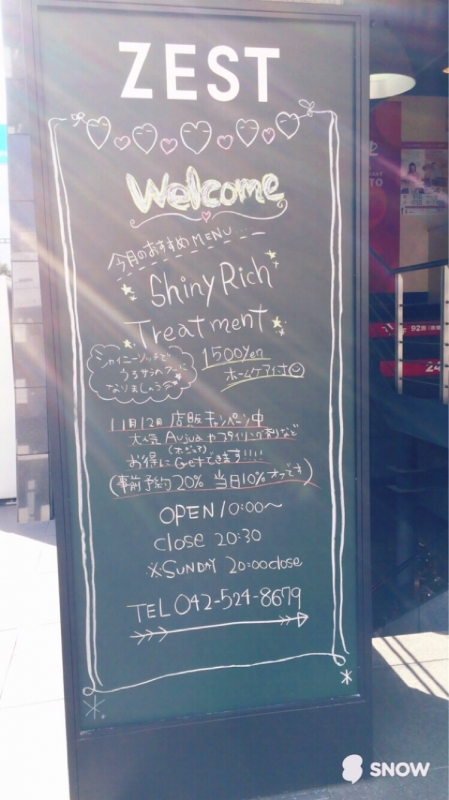 ZEST
Welcome
今月のおすすめMENU
Shiny Rich
Treatment
シャイニーリッチで
うるサラヘアーに
なりましょう
1500yen
ホームケア付
11月12月 店販キャンペーン中
大人気 Aujuaやスタイリング剤など
(オージュア)
お得にGetできます!!!!
(事前予約20% 当日10%オフです)
OPEN10:00〜
close 20:30
※SUNDAY 20:00close
TEL 042-524-8679
92
24
SNOW